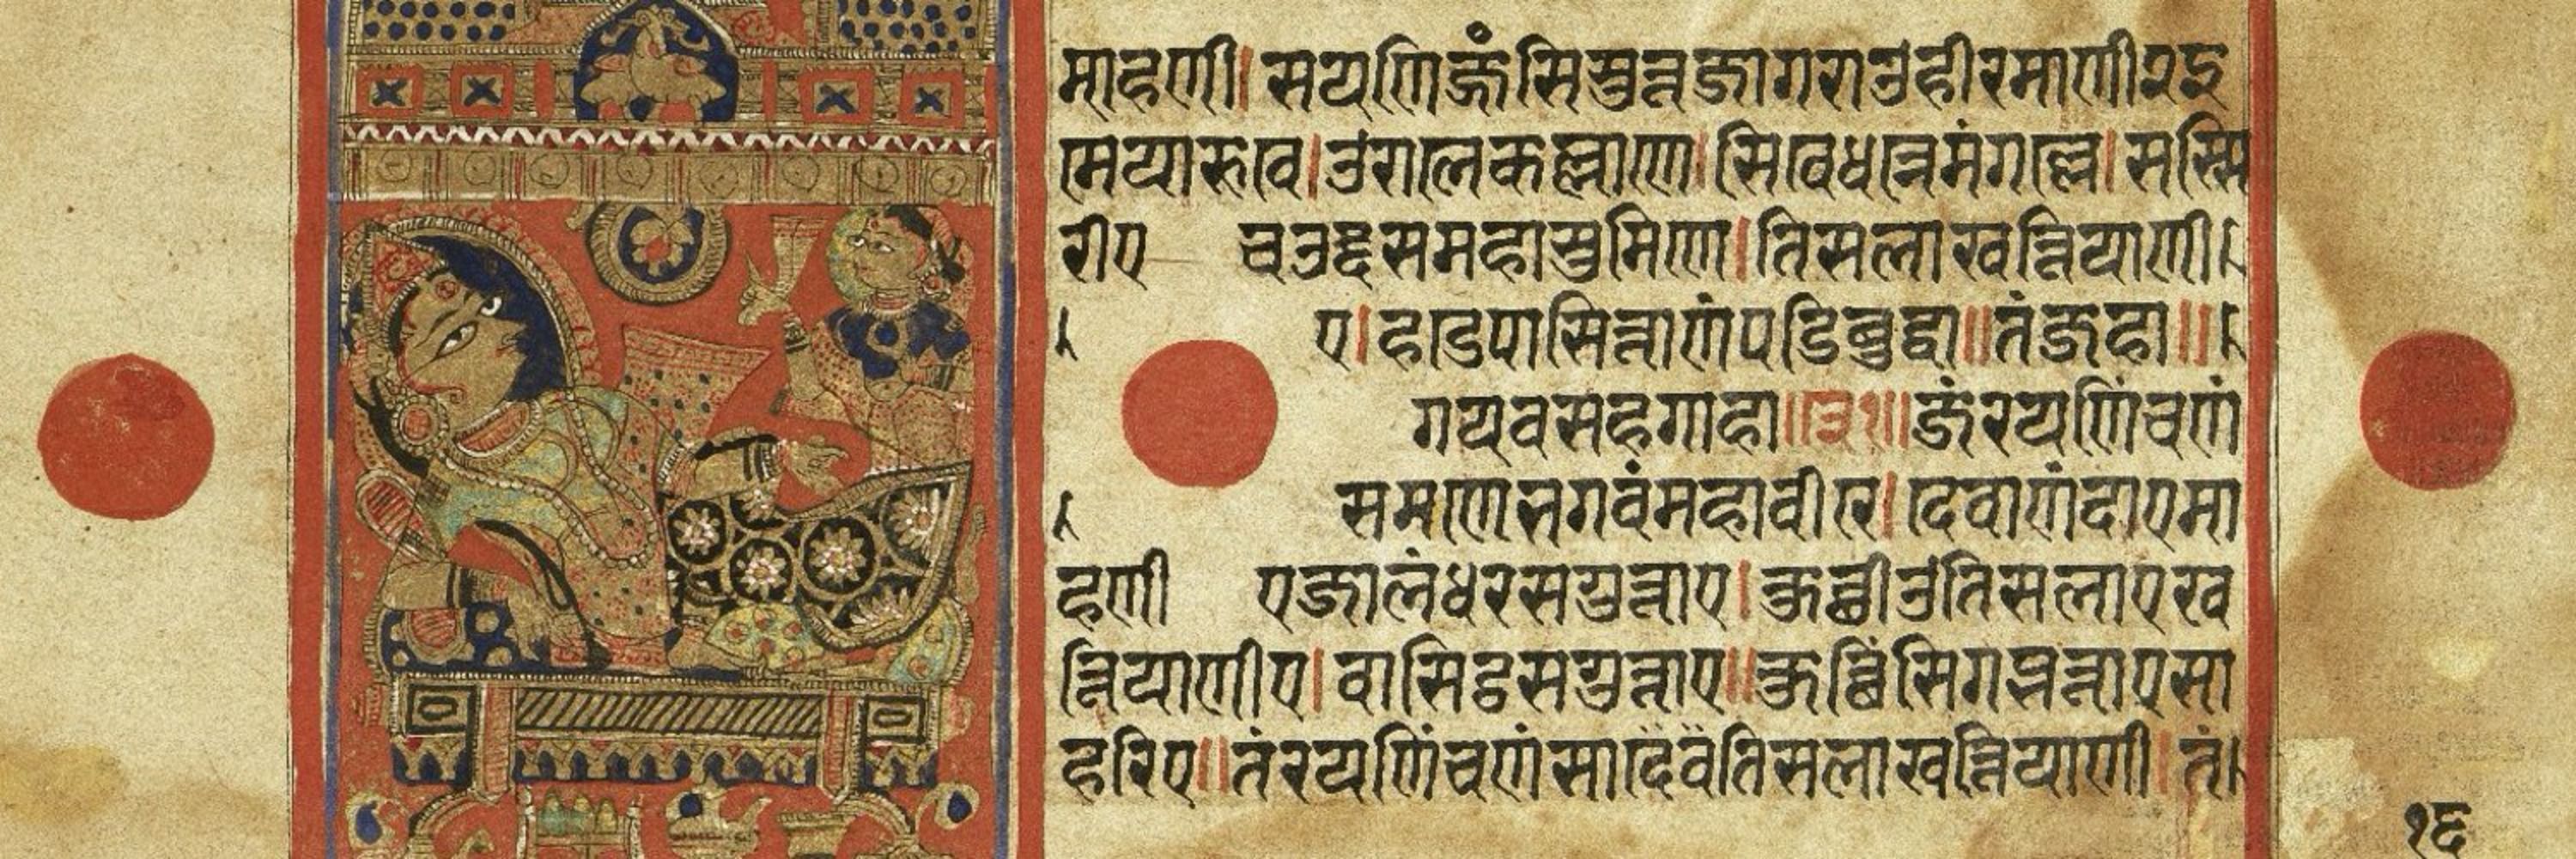 माहणी। सयणिज्जंसि सुत्तजागरा उहीरमाणी २ इ
मेयारूवे। उराले कल्लाणे। सिवे धन्ने मंगल्ले। सस्सि
रीए चउद्दस महासुमिणे। तिसला खत्तियाणी
ए। हडे पासित्ता णं पडिबुद्धा॥ तं जहा॥
गय वसह गाहा॥३१॥ जं रयणिं च णं
समणे भगवं महावीरे। देवाणंदाए मा
हणीए जालंधरसगुत्ताए। कुच्छीउ तिसलाए ख
त्तियाणीए। वासिट्ठसगुत्ताए॥ कुच्छिंसि गब्भत्ताए सा
हरिए॥ तं रयणिं च णं सा देवे तिसला खत्तियाणी। तं
१६